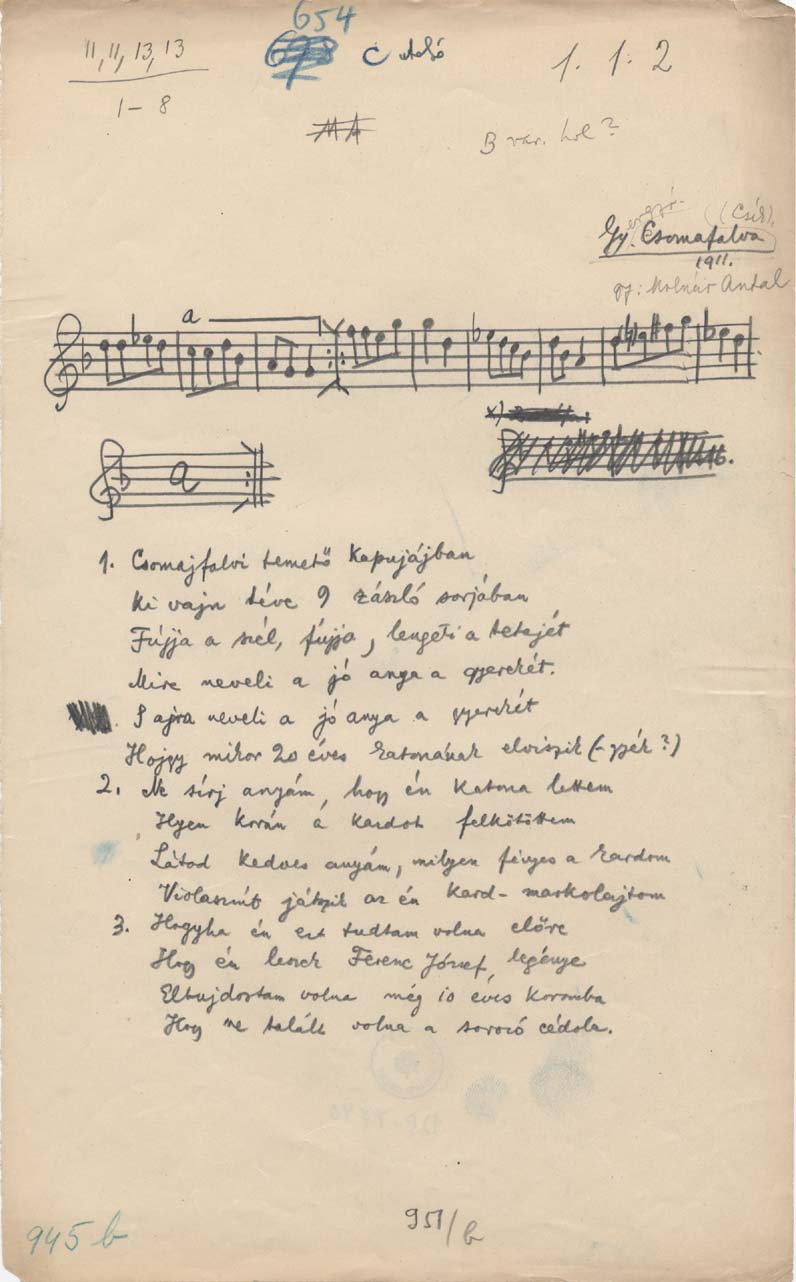 654
11, 11, 13, 13
C Alsó
1. 1. 2
1–8
B var. hol?
Gyergyó- (Csík).
Gy. Csomafalva
1911.
gy: Molnár Antal
a
a
1. Csomajfalvi temető kapujájban
Ki vajn téve 9 zászló sorjában
Fújja a szél, fújja, lengeti a tetejét
Mire neveli a jó anya a gyerekét.
S ajra neveli a jó anya a gyerekét
Hojgy mikor 20 éves katonának elviszik (-gyék?)
2. Ne sírj anyám, hogy én katona lettem
Ilyen korán a kardot felkötöttem
Látod kedves anyám, milyen fényes a kardom
Violaszínt játszik az én kard-markolajtom
3. Hogyha én ezt tudtam volna előre
Hogy én leszek Ferenc József, legénye
Elbujdostam volna még 10 éves koromba
Hogy ne talált volna a sorozó cédola.
951/b
945 b